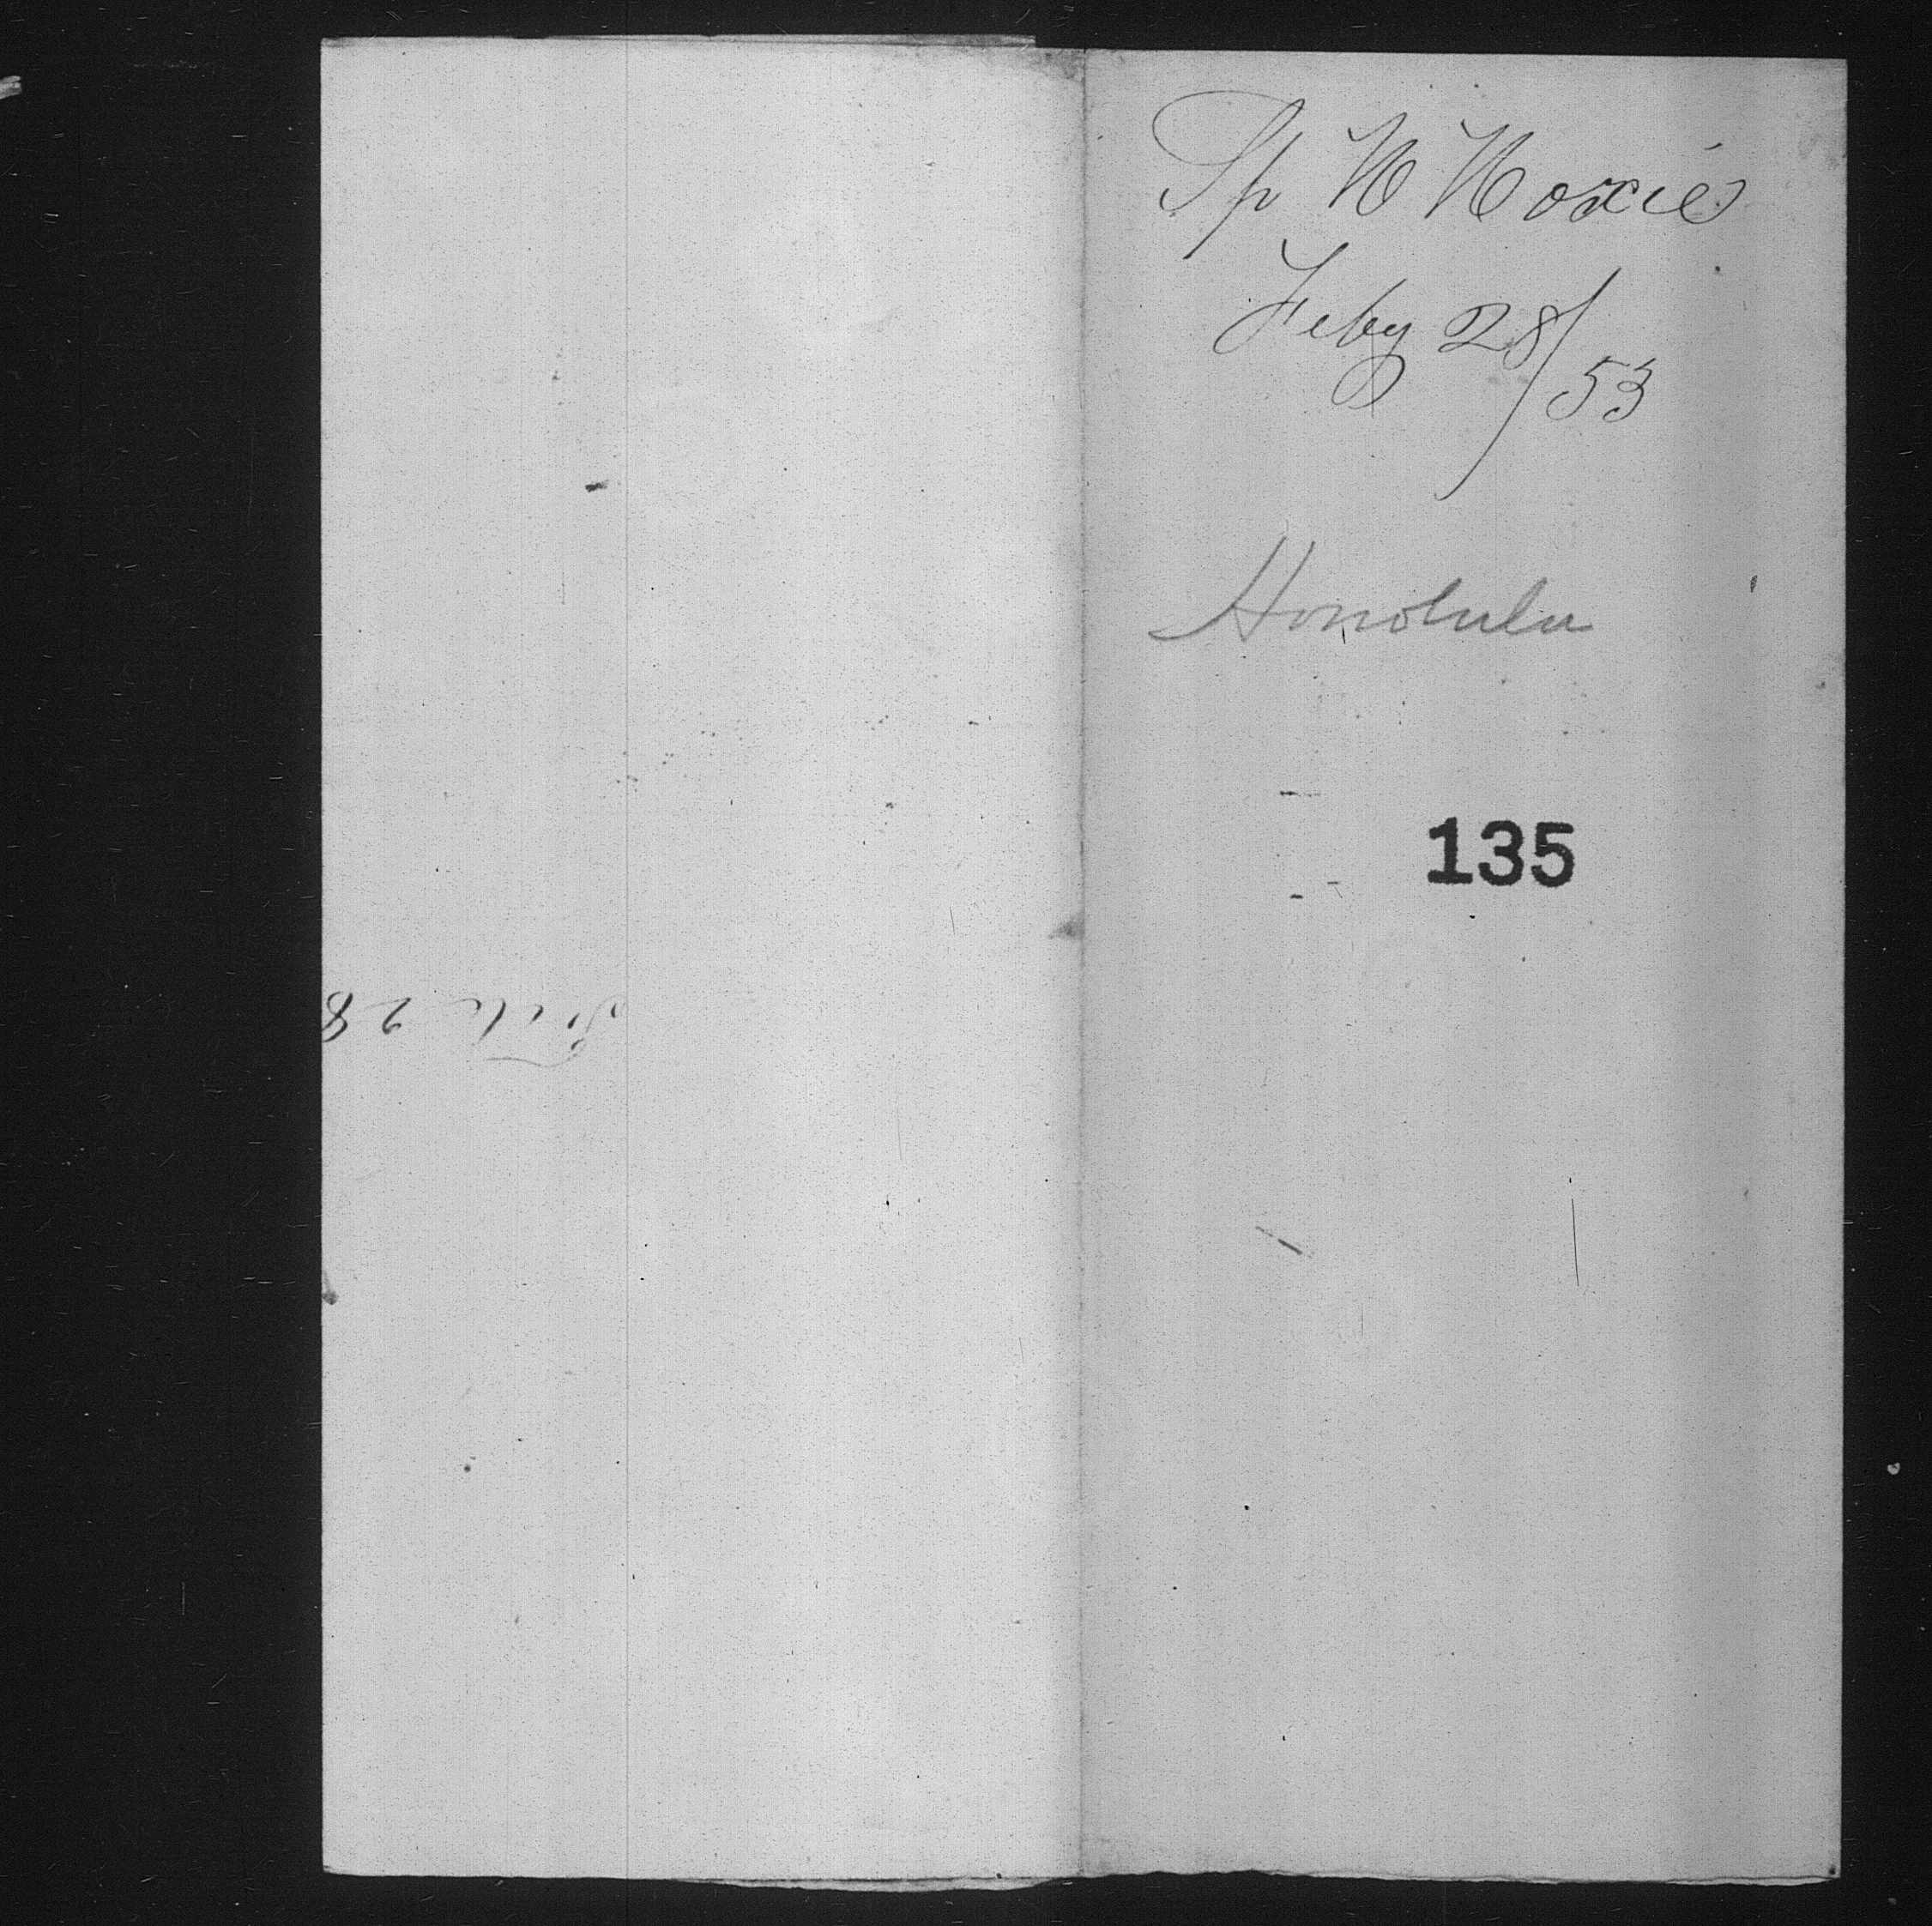 Sp N Noxie
Feby 28/53
Honolulu
135
Feb 28